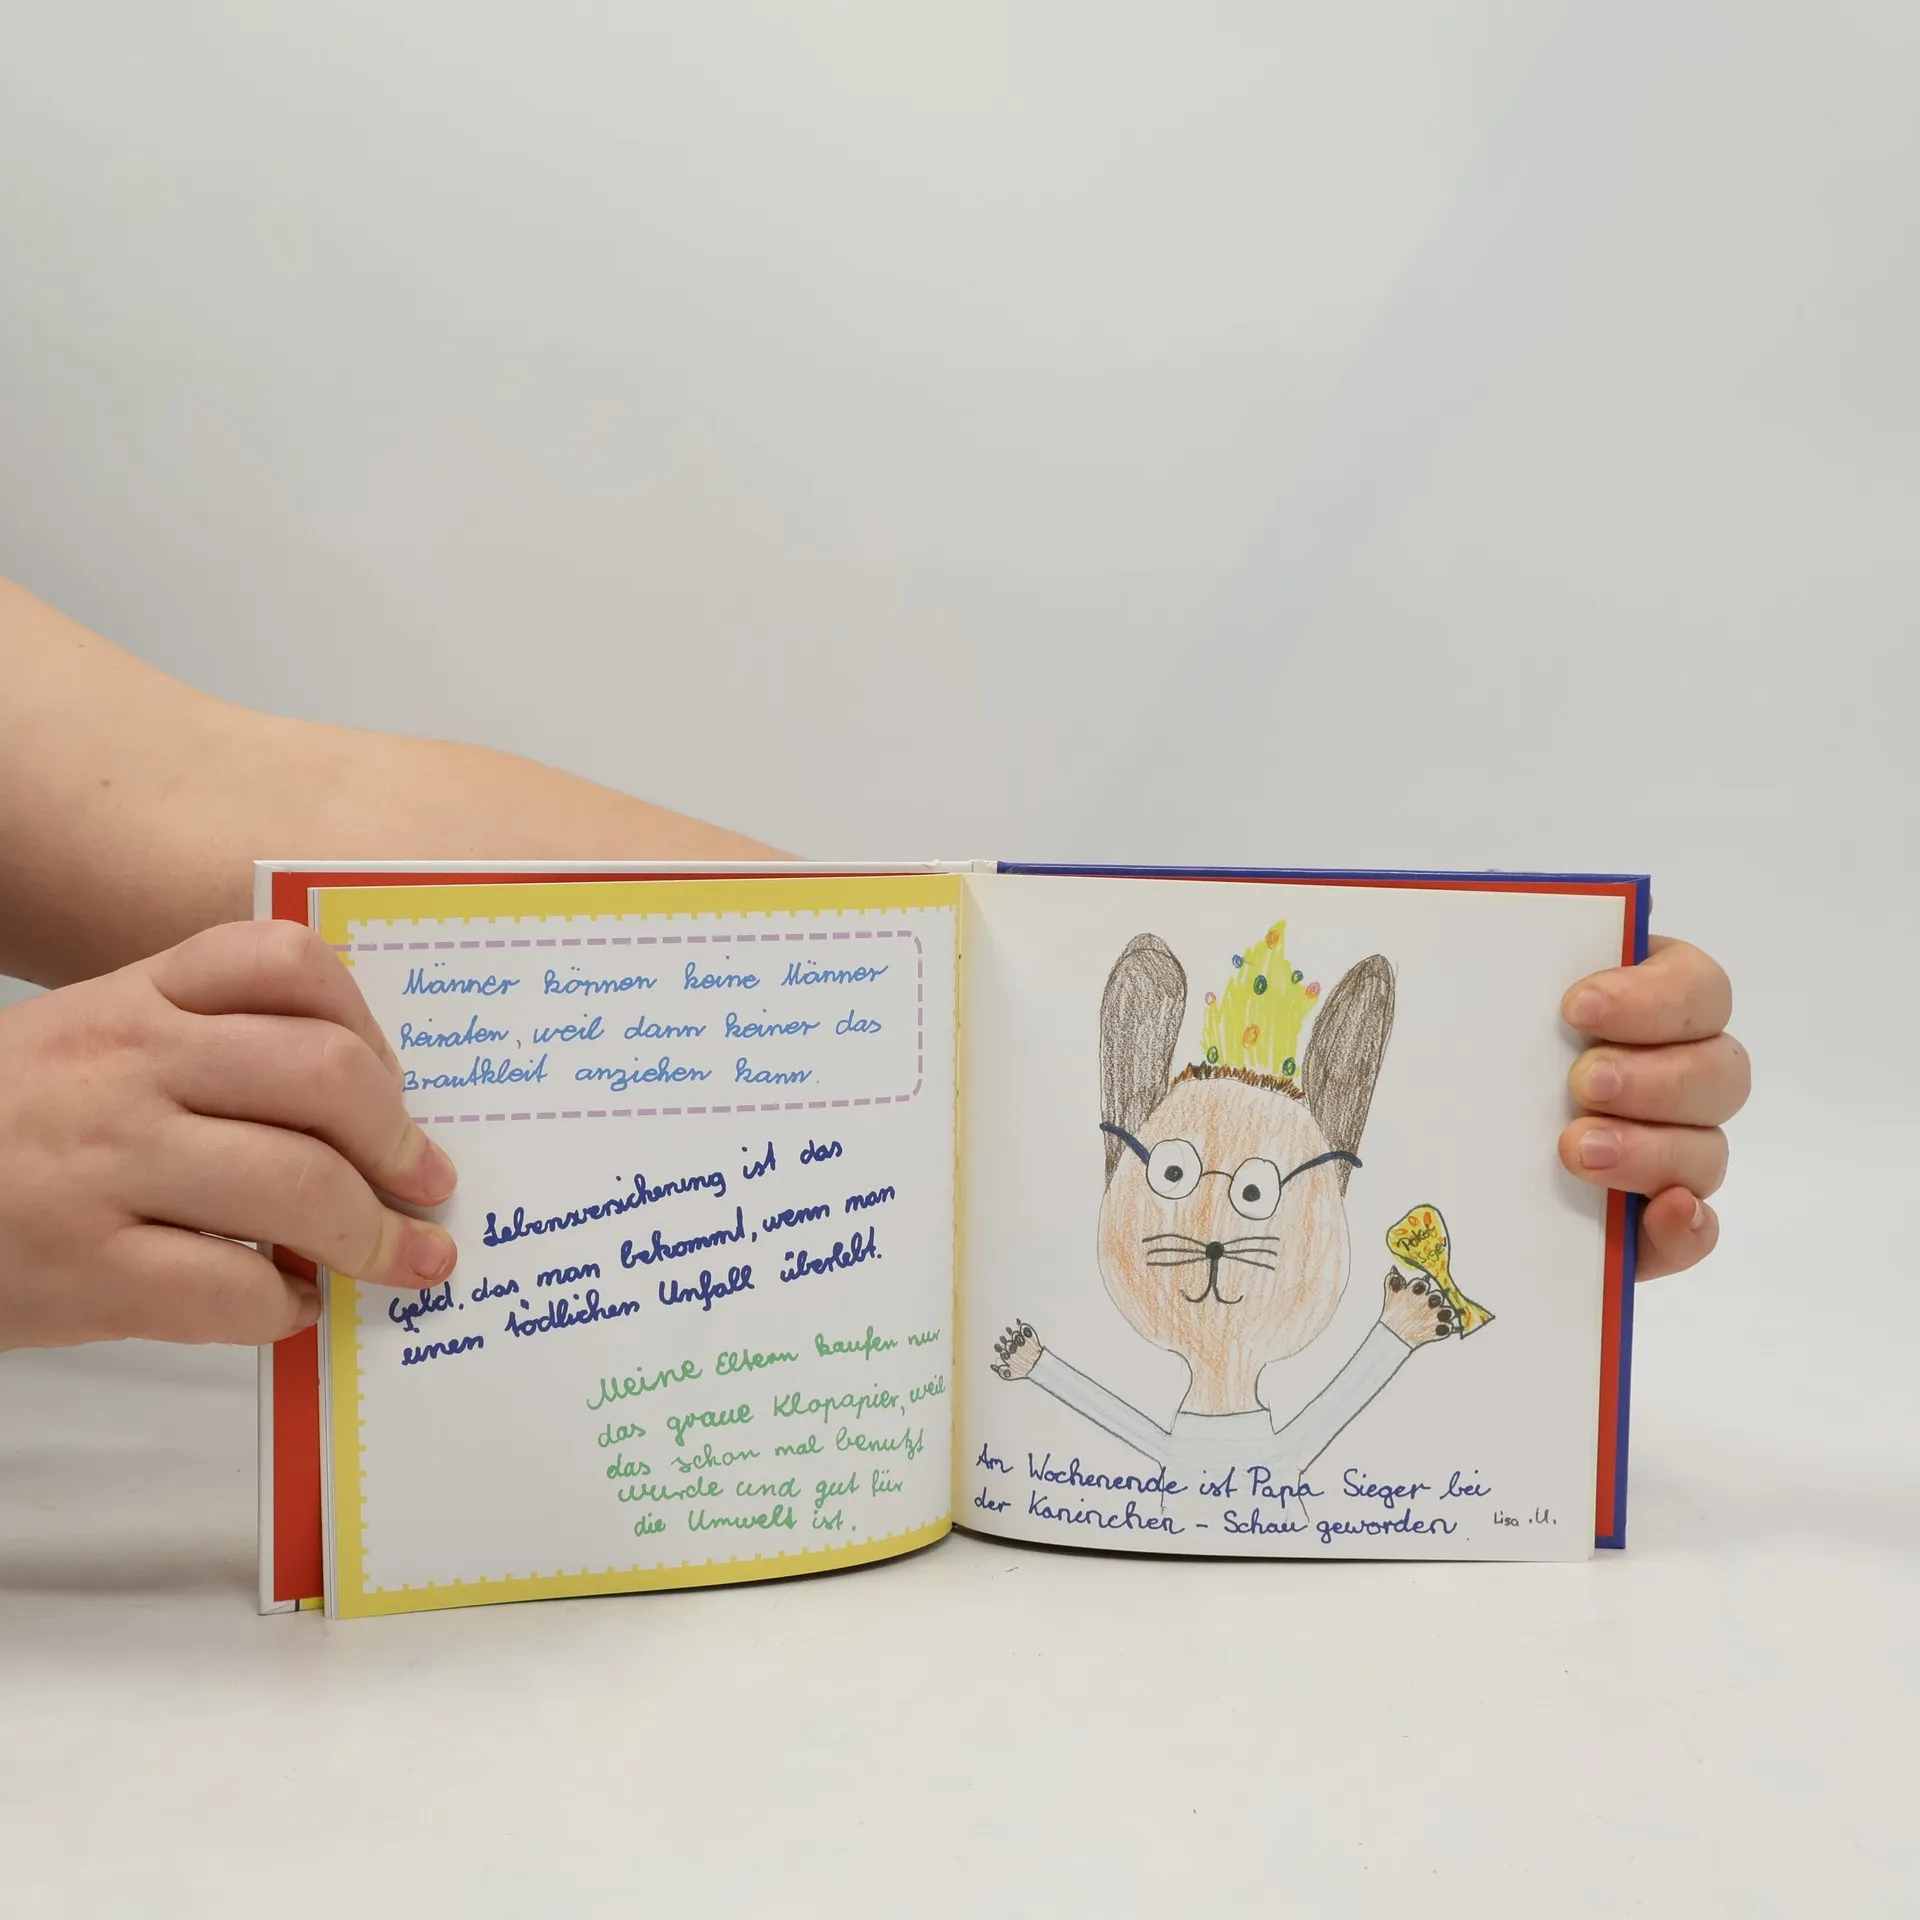 Männer können keine Männer
heiraten, weil dann keiner das
Brautkleit anziehen kann.
Lebensversicherung ist das
Geld, das man bekommt, wenn man
einen tödlichen Unfall überlebt.
Meine Eltern kaufen nur
das graue Klopapier, weil
das schon mal benutzt
wurde und gut für
die Umwelt ist.
Pokal
Siger
Am Wochenende ist Papa Sieger bei
der Kaninchen - Schau geworden.
Lisa .U.